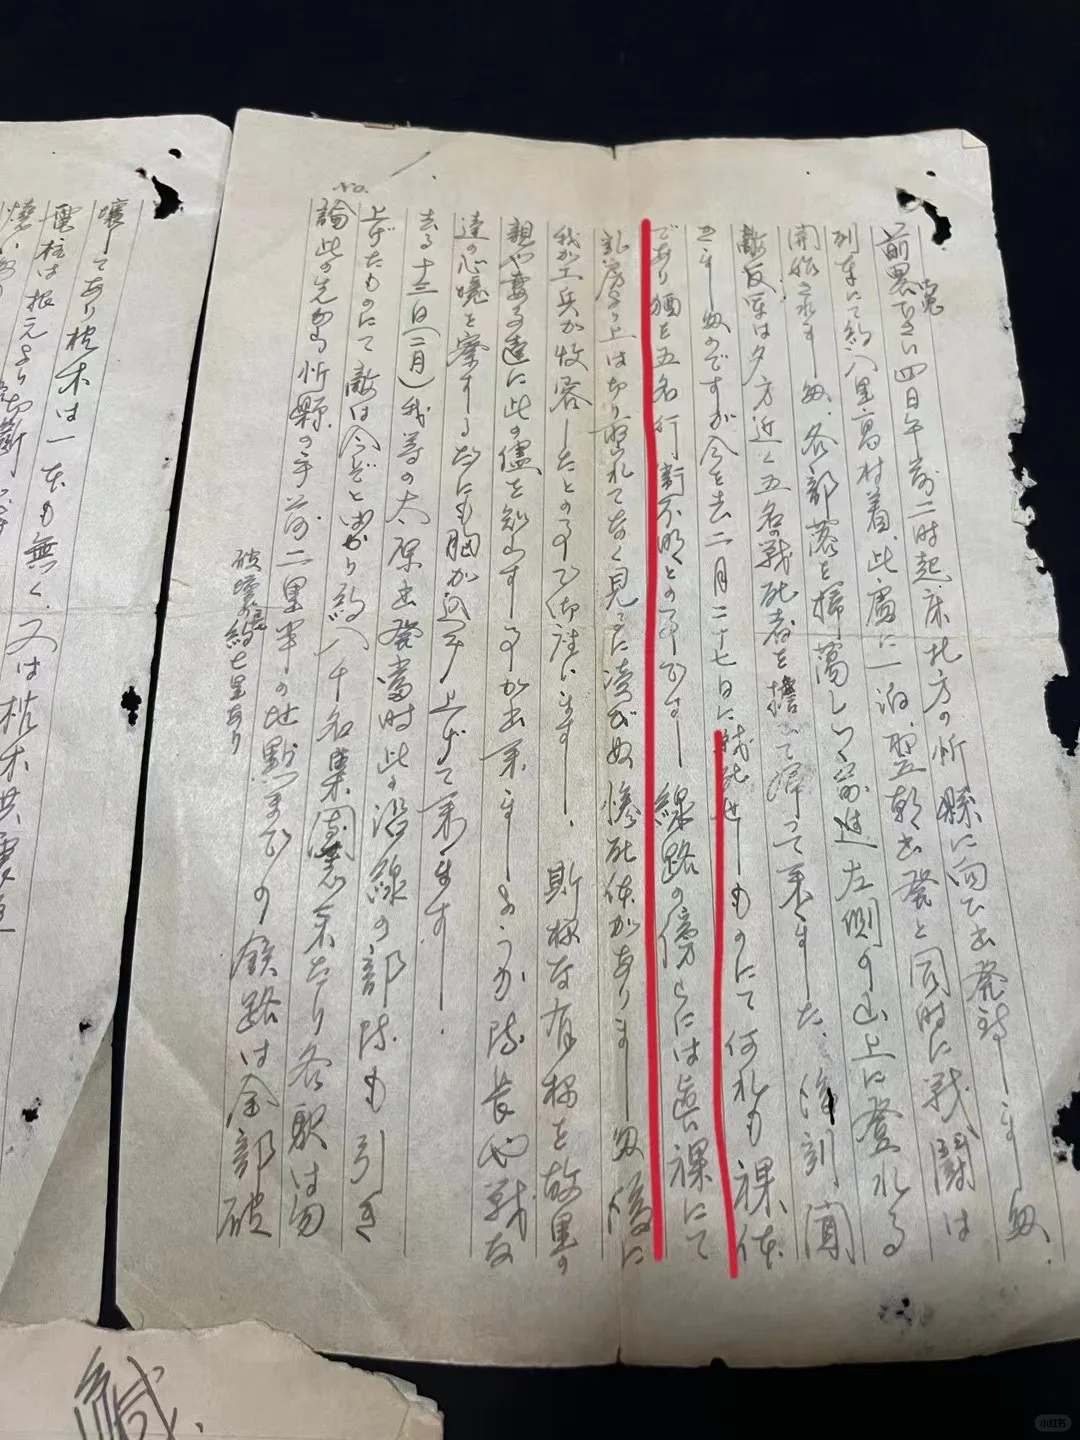 四日午前二時起床北方の忻縣に向ひ出発致しま
列车にて約八里高村着、此處に一泊、翌朝出発と同時に戦闘は
開始、各部落を掃蕩しつゝ前進左側の山上に登れる
敵反軍は夕方近く五名の戦死者を擔いで帰って来ました、後刻聞
きましのですが今を去二月二十七日に戦死せしものにて何れも裸体
であり猶も五名行衛不明との事です 線路の傍らには眞裸にて
乳房より上は切り取れてなく見るに凌びぬ惨死体がありまし 後に
我が工兵が收容したとの事で御座います 斯様な有様を故里の
親や妻子達に此の儘を知らする事が出来ませうか 隊長や戦友
達の心境を察する故にも胸が込み上げて来ます
去る十三日(二月)我等の太原出発當時此の沿線の部隊も引き
上げたものにて敵は今ぞとばかり約八千名集團来たり各駅は勿
論此の先方忻縣の手前二里半の地點までの鉄路は全部破
破壊線約七里あり
No.
壊してあり枕木は一本も無く、又は枕木共
電柱は根元より切断
緘
小红书